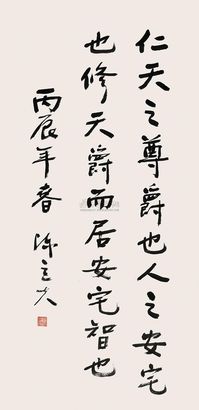 仁天之尊爵也人之安宅
也修天爵而居安宅智也
丙辰年春 陈立夫